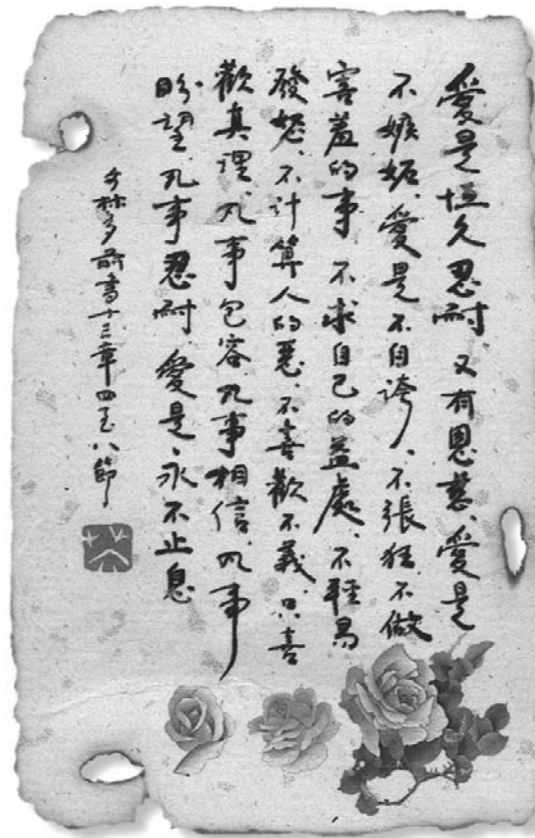 愛是恆久忍耐、又有恩慈、愛是
不嫉妬、愛是不自誇、不張狂、不做
害羞的事、不求自己的益處、不輕易
發怒、不計算人的惡、不喜歡不義、只喜
歡真理、凡事包容、凡事相信、凡事
盼望、凡事忍耐、愛是永不止息
哥林多前書十三章四至八節